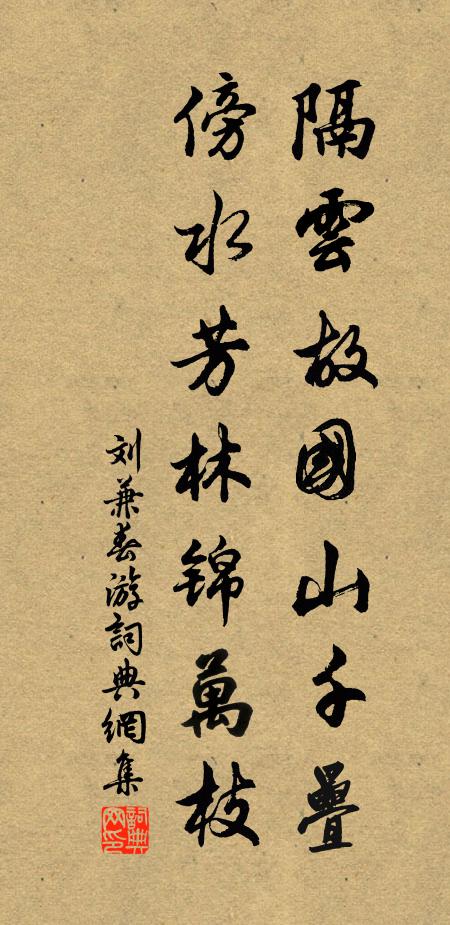 隔雲故國山千疊
傍水芳林錦萬枝
刘兼春游詞典網集
詞典网印